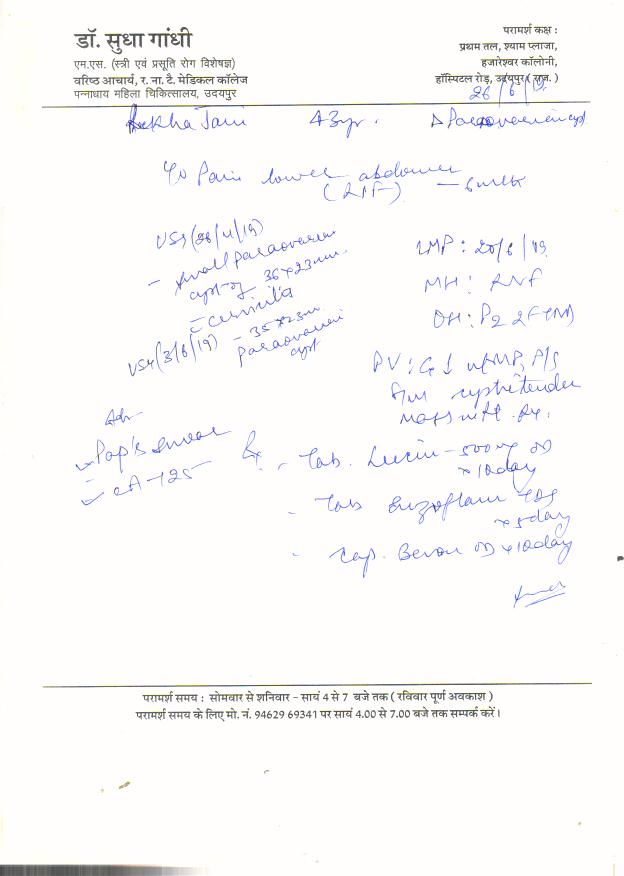 डॉ. सुधा गांधी
एम.एस. (स्त्री एवं प्रसूति रोग विशेषज्ञ)
वरिष्ठ आचार्य, र. ना. टै. मेडिकल कॉलेज
पन्नाधाय महिला चिकित्सालय, उदयपुर
परामर्श कक्ष :
प्रथम तल, श्याम प्लाजा,
हजारेश्वर कॉलोनी,
हॉस्पिटल रोड़, उदयपुर ( राज. )
26/6/19
43yr. Paraovarian cyst
Pain lower abdomen
(RIF) –
USG
- small paraovarian
cyst of 36×23mm
cervicitis
USG (3/6/19) - 35×23mm
paraovarian
cyst
LMP : 20/6/19
MH :
OH : P2
PV :
tender
mass
Adv
Pap's smear
CA-125
Rx
- Tab. 500mg OD
× 10day
- Tab Enzoflam
× 5day
- Cap. Bevon OD × 10day
परामर्श समय : सोमवार से शनिवार – सायं 4 से 7 बजे तक ( रविवार पूर्ण अवकाश )
परामर्श समय के लिए मो. नं. 94629 69341 पर सायं 4.00 से 7.00 बजे तक सम्पर्क करें।